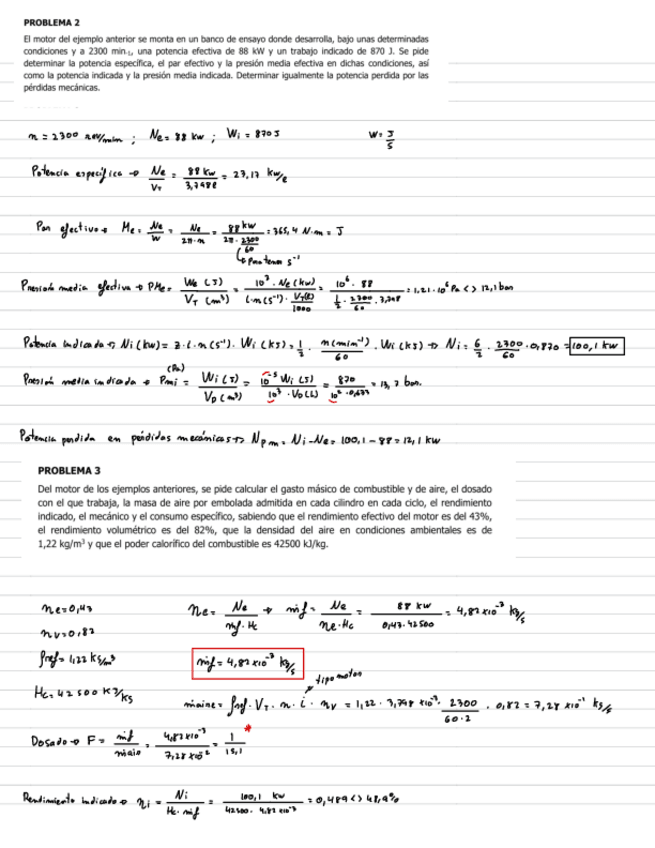 PROBLEMA 2
El motor del ejemplo anterior se monta en un banco de ensayo donde desarrolla, bajo unas determinadas
condiciones y a 2300 min-1, una potencia efectiva de 88 kW y un trabajo indicado de 870 J. Se pide
determinar la potencia específica, el par efectivo y la presión media efectiva en dichas condiciones, así
como la potencia indicada y la presión media indicada. Determinar igualmente la potencia perdida por las
pérdidas mecánicas.
n = 2300 rev/min ; Ne = 88 kw ; Wi = 870 J W = J/S
Potencia específica → Ne/VT = 88 kw/3,798ℓ = 23,17 kw/ℓ
Par efectivo → Me = Ne/W = Ne/2π·n = 88 kw/(2π·2300/60) = 365,4 N·m = J
↳ Para tener s⁻¹
Presión media efectiva → PMe = We (J)/VT (m³) = 10³·Ne (kw)/(i·n (s⁻¹)·VT(ℓ)/1000) = 10⁶·88/(1/2·2300/60·3,798) = 1,21·10⁶ Pa <> 12,1 bar
Potencia indicada → Ni (kw) = z·i·n (s⁻¹)·Wi (kJ) = 1/2·n(min⁻¹)/60·Wi (kJ) → Ni = 6/2·2300/60·0,870 = 100,1 kw
Presión media indicada → Pmi (Pa) = Wi (J)/VD (m³) = 10⁻⁵ Wi (J)/10³·VD (L) = 870/10²·0,633 = 13,7 bar.
Potencia perdida en pérdidas mecánicas → Npm = Ni - Ne = 100,1 - 88 = 12,1 kw
PROBLEMA 3
Del motor de los ejemplos anteriores, se pide calcular el gasto másico de combustible y de aire, el dosado
con el que trabaja, la masa de aire por embolada admitida en cada cilindro en cada ciclo, el rendimiento
indicado, el mecánico y el consumo específico, sabiendo que el rendimiento efectivo del motor es del 43%,
el rendimiento volumétrico es del 82%, que la densidad del aire en condiciones ambientales es de
1,22 kg/m³ y que el poder calorífico del combustible es 42500 kJ/kg.
ηe = 0,43 ηe = Ne/ṁf·Hc → ṁf = Ne/ηe·Hc = 88 kw/0,43·42500 = 4,82 x10⁻³ kg/s
ηv = 0,82
ρref = 1,22 kg/m³ ṁf = 4,82 x10⁻³ kg/s
tipo motor
Hc = 42500 KJ/kg ṁaire = ρref·VT·n·i·ηv = 1,22·3,798 x10⁻³·2300/60·2·0,82 = 7,28 x10⁻² kg/s
Dosado → F = ṁf/ṁaire = 4,82x10⁻³/7,28x10⁻² = 1/15,1 *
Rendimiento indicado → ηi = Ni/Hc·ṁf = 100,1 kw/42500·4,82 x10⁻³ = 0,489 <> 48,9%